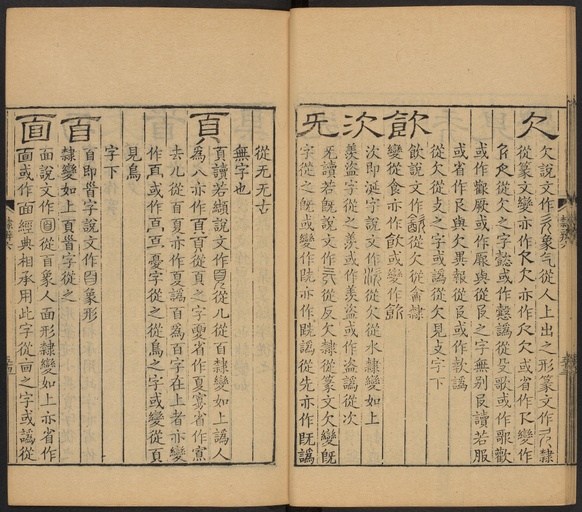 欠 㱃 㳄 旡
欠說文作 象气從人上出之形篆文作 隸
從篆文變亦作 欠亦作欠或省作 變作
從欠之字 或作 譌從 歌或作 歡
或作歡厥或作 厥與從 之字無別 讀若服
或省作 與欠異報從 或作款譌
從欠從支之字或譌從欠見攴字下
飲說文作 從欠從酓隸
變從食亦作飲或變作
次即涎字說文作 從欠從水隸變如上
羨盜字從之羨或作羨盜或作盗譌從次
旡讀若旣說文作 從反欠隸從篆文欠變旣
字從之旣或變作 亦作 譌從先亦作既譌
從无无古
無字也
頁 𦣻 面
頁讀若纈說文作 從儿從百隸變如上譌人
為八亦作 頁從頁之字 省作夏寡省作
去儿從百夏亦作夏譌百為百字在上者亦變
作 或作 憂字從之從鳥之字或變從頁
見鳥
字下
百即首字說文作 象形
隸變如上 首字從之
面說文作 從百象人面形隸變如上亦省作
面或作面經典相承用此字從面之字或譌從